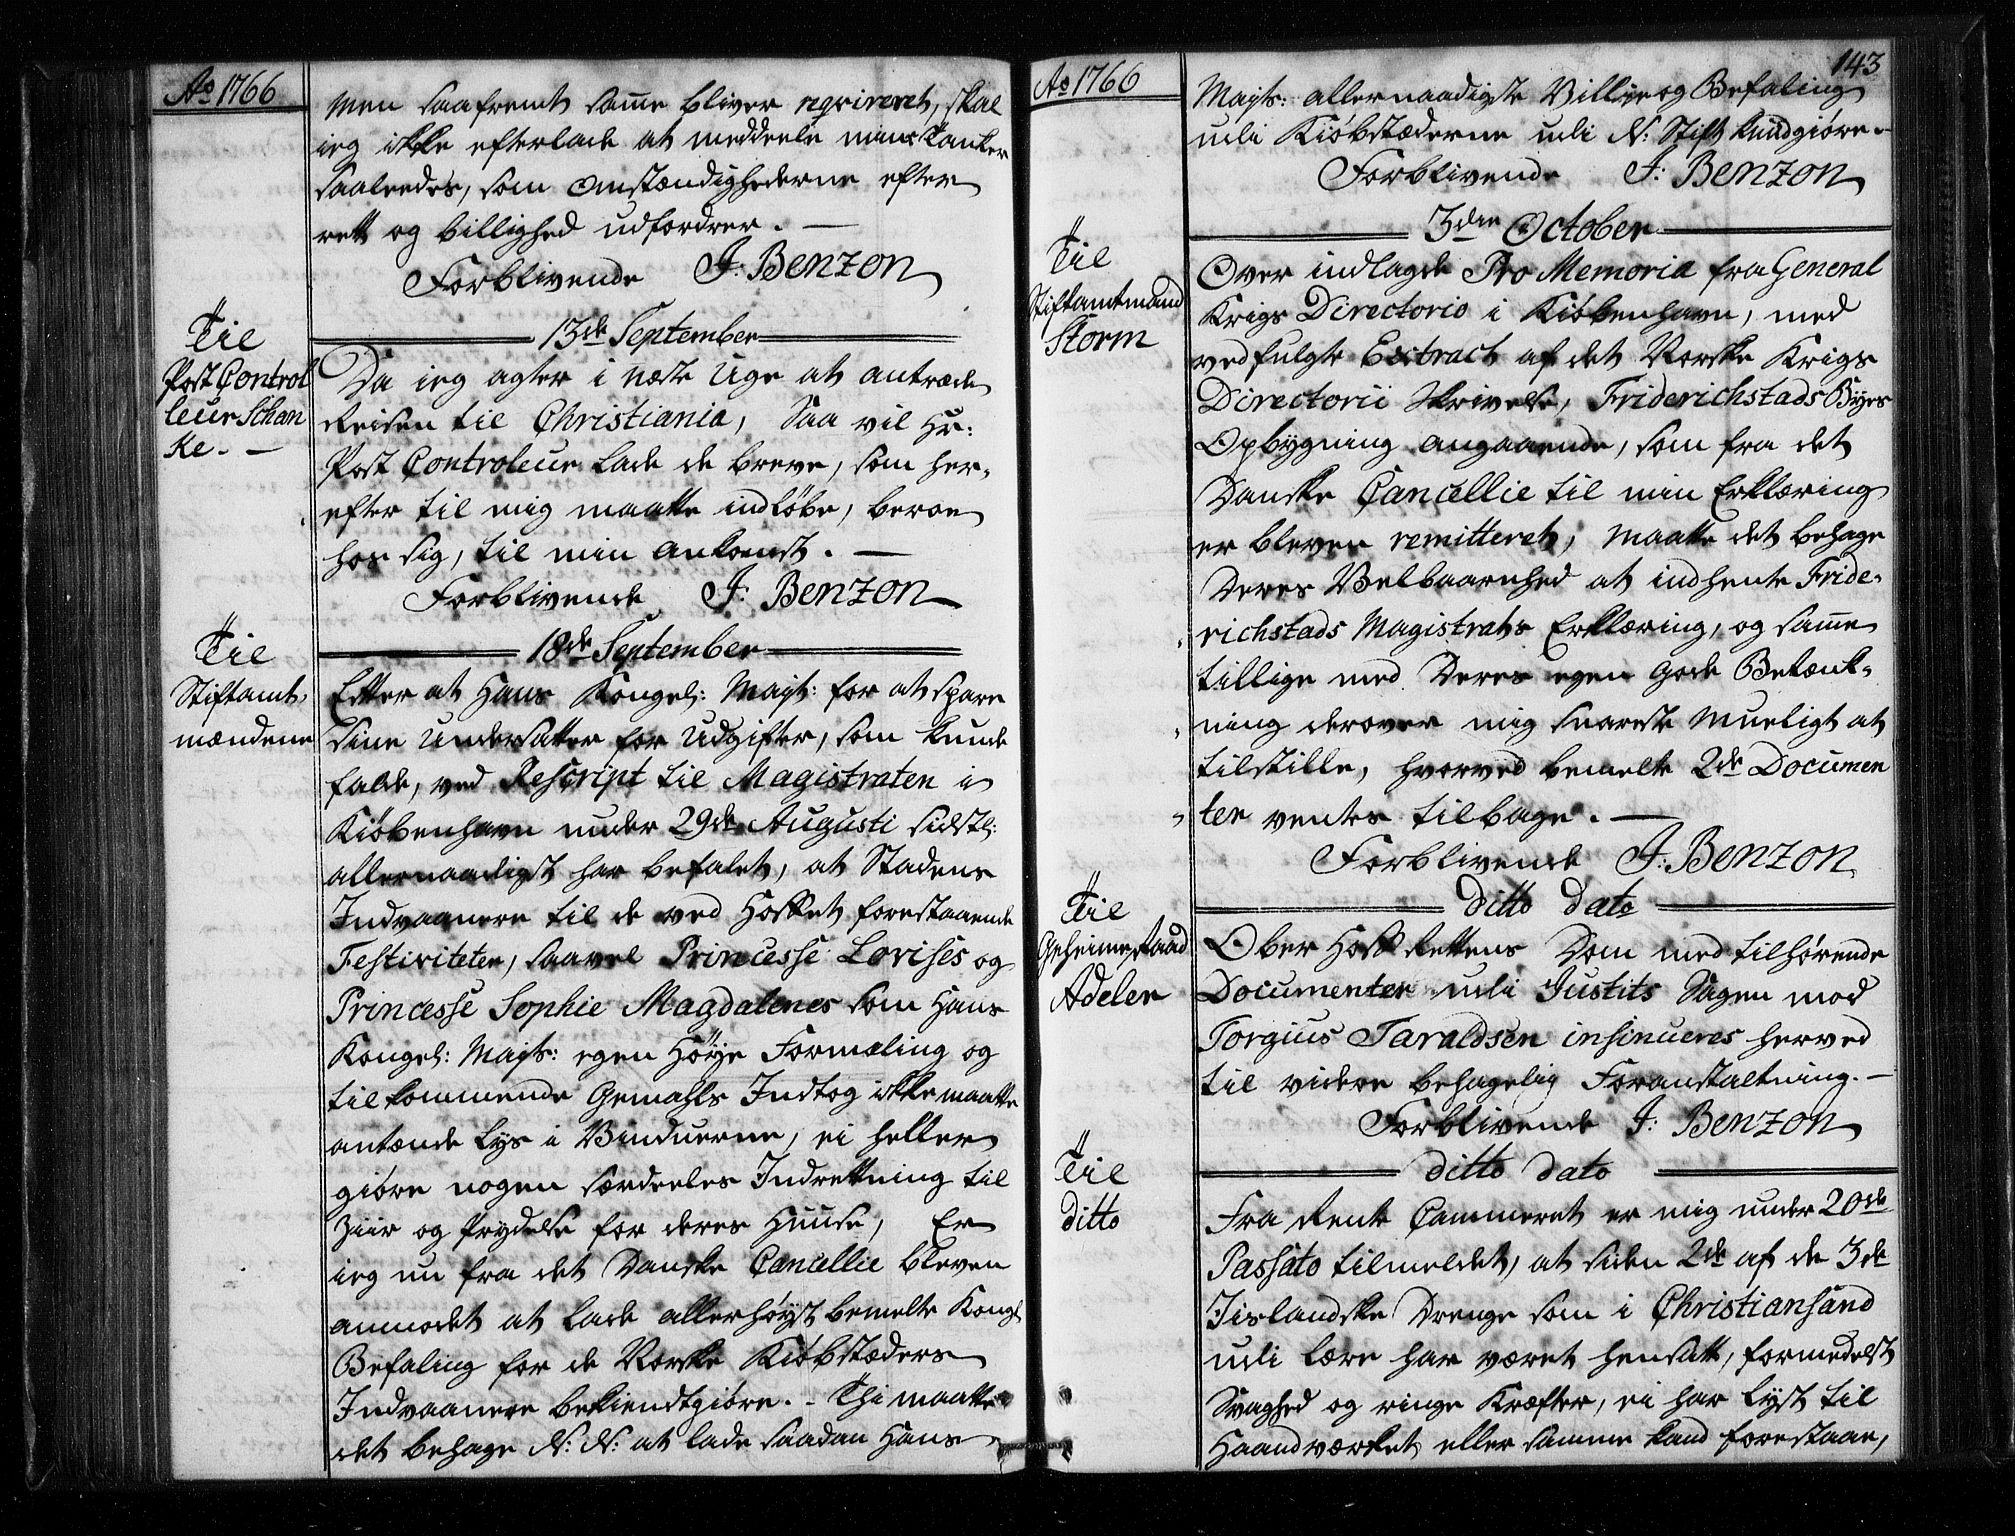 Ao 1766
men saafremt samme bliver reqvireret, skal
ieg ikke efterlade at meddeele mine Tanker
saaleedes, som Omstændighederne efter
rett og billighed udfordrer. —
Forblivende J: Benzon
13de September
Til
Post Control
leur Schan
ke. —
Da ieg agter i næste Uge at antræde
Reisen til Christiania, Saa vil Hr:
Post Controleur lade de breve, som her-
efter til mig maatte indløbe, beroe
hos sig, til min ankomst. —
Forblivende J: Benzon
18de September
Til
Stiftamt-
mændene
Efter at Hans Kongel: Mayt: for at spare
sine Undersatter for Udgifter, som kunde
falde, ved Rescript til Magistraten i
Kiøbenhavn under 29de Augusti sidstl:
allernaadigst har befalet, at Stadens
Indvaanere til de ved Hoffet forestaaende
Festiviteter, saavel Princesse Lovises og
Princesse Sophie Magdalenes som Hans
Kongel: Mayts: egen Høye Formæling og
tilkommende Gemahls Indtog ikke maatte
antænde Lys i Vinduerne, ei heller
giøre nogen særdeeles Indrettning til
Ziir og Prydelse for deres Huuse, Er
ieg nu fra det Danske Cancellie bleven
anmodet at lade allerhøyst bemelte Kongl
Befaling for de Norske Kiøbstæders
Indvaanere bekiendtgiøre. - Thi maatte
det behage N: N: at lade saadan Hans
Ao 1766
143
Mayts: allernaadigste Villie og Befaling
udi Kiøbstæderne udi N: Stift kundgiøre.-
Forblivende J: Benzon
3den October
Til
Stiftamtmand
Storm
Over indlagde Pro Memoria fra General
Krigs Directorio i Kiøbenhavn, med
vedfulgte Extract af det Norske Krigs
Directorii Skrivelse, Friderichstads Byes
Opbygning angaaende, som fra det
Danske Cancellie til min Erklæring
er bleven remitteret, maatte det behage
Deres Velbaarnhed at indhente Fride-
richstads Magistrats Erklæring, og samme
tillige med Deres egen gode Betænk-
ning derover mig snareste mueligt at
tilstille, hvorved bemelte 2de Documen
ter ventes tilbage. —
Forblivende J: Benzon
ditto dato
Til
Geheimeraad
Adeler
Ober Hoff Rettens Dom med tilhørende
Documenter udi Justits Sagen mod
Torgius Taraldsen insinueres herved
til videre behagelig Foranstaltning. —
Forblivende J: Benzon
ditto dato
Til
ditto
Fra Rente Cammeret er mig under 20de
Passato tilmeldet, at siden 2de af de 3de
Iislandske Drenge som i Christiansand
udi lære har været hensatt, formedelst
Svaghed og ringe Kræfter, ei har lyst til
Haandværket, eller samme kand forestaae,